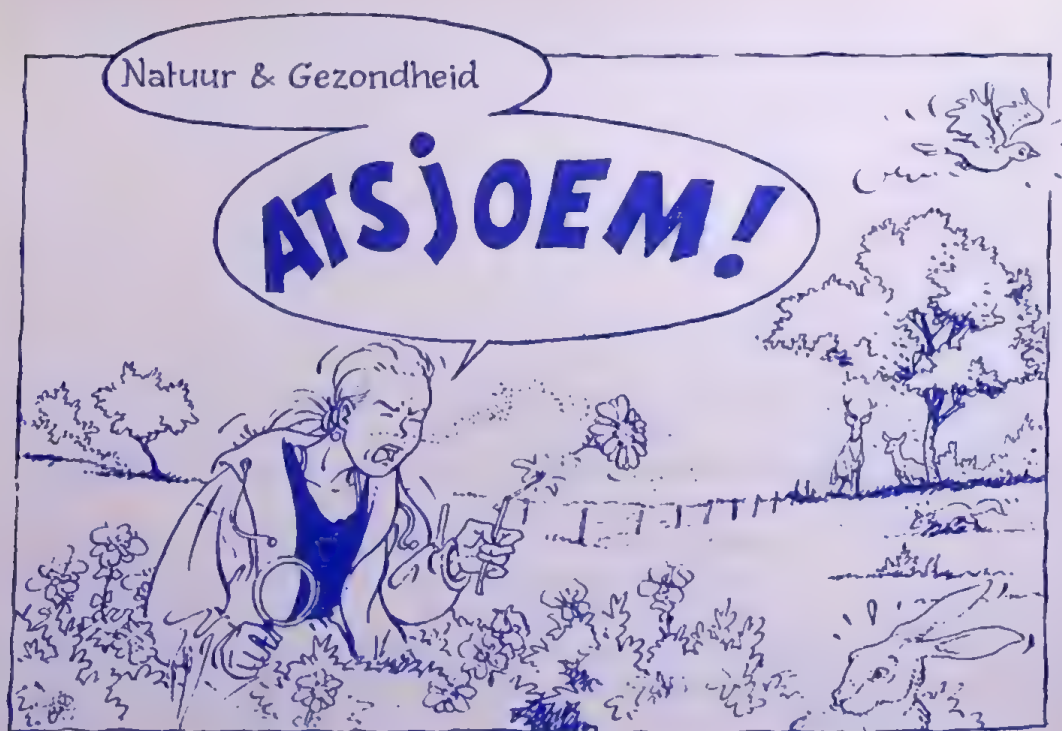 Natuur & Gezondheid
ATSjOEM!